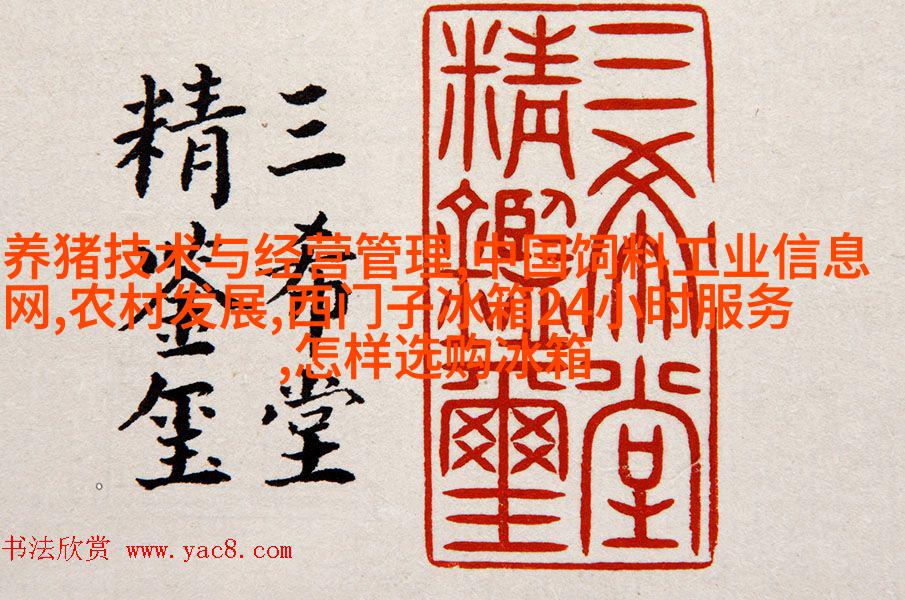 三希堂
精鑑璽
三希堂
精鉴玺
养猪技术与经营管理,中国饲料工业信息
网,农村发展,西门子冰箱24小时服务
,怎样选购冰箱
书法欣赏 www.yac8.com